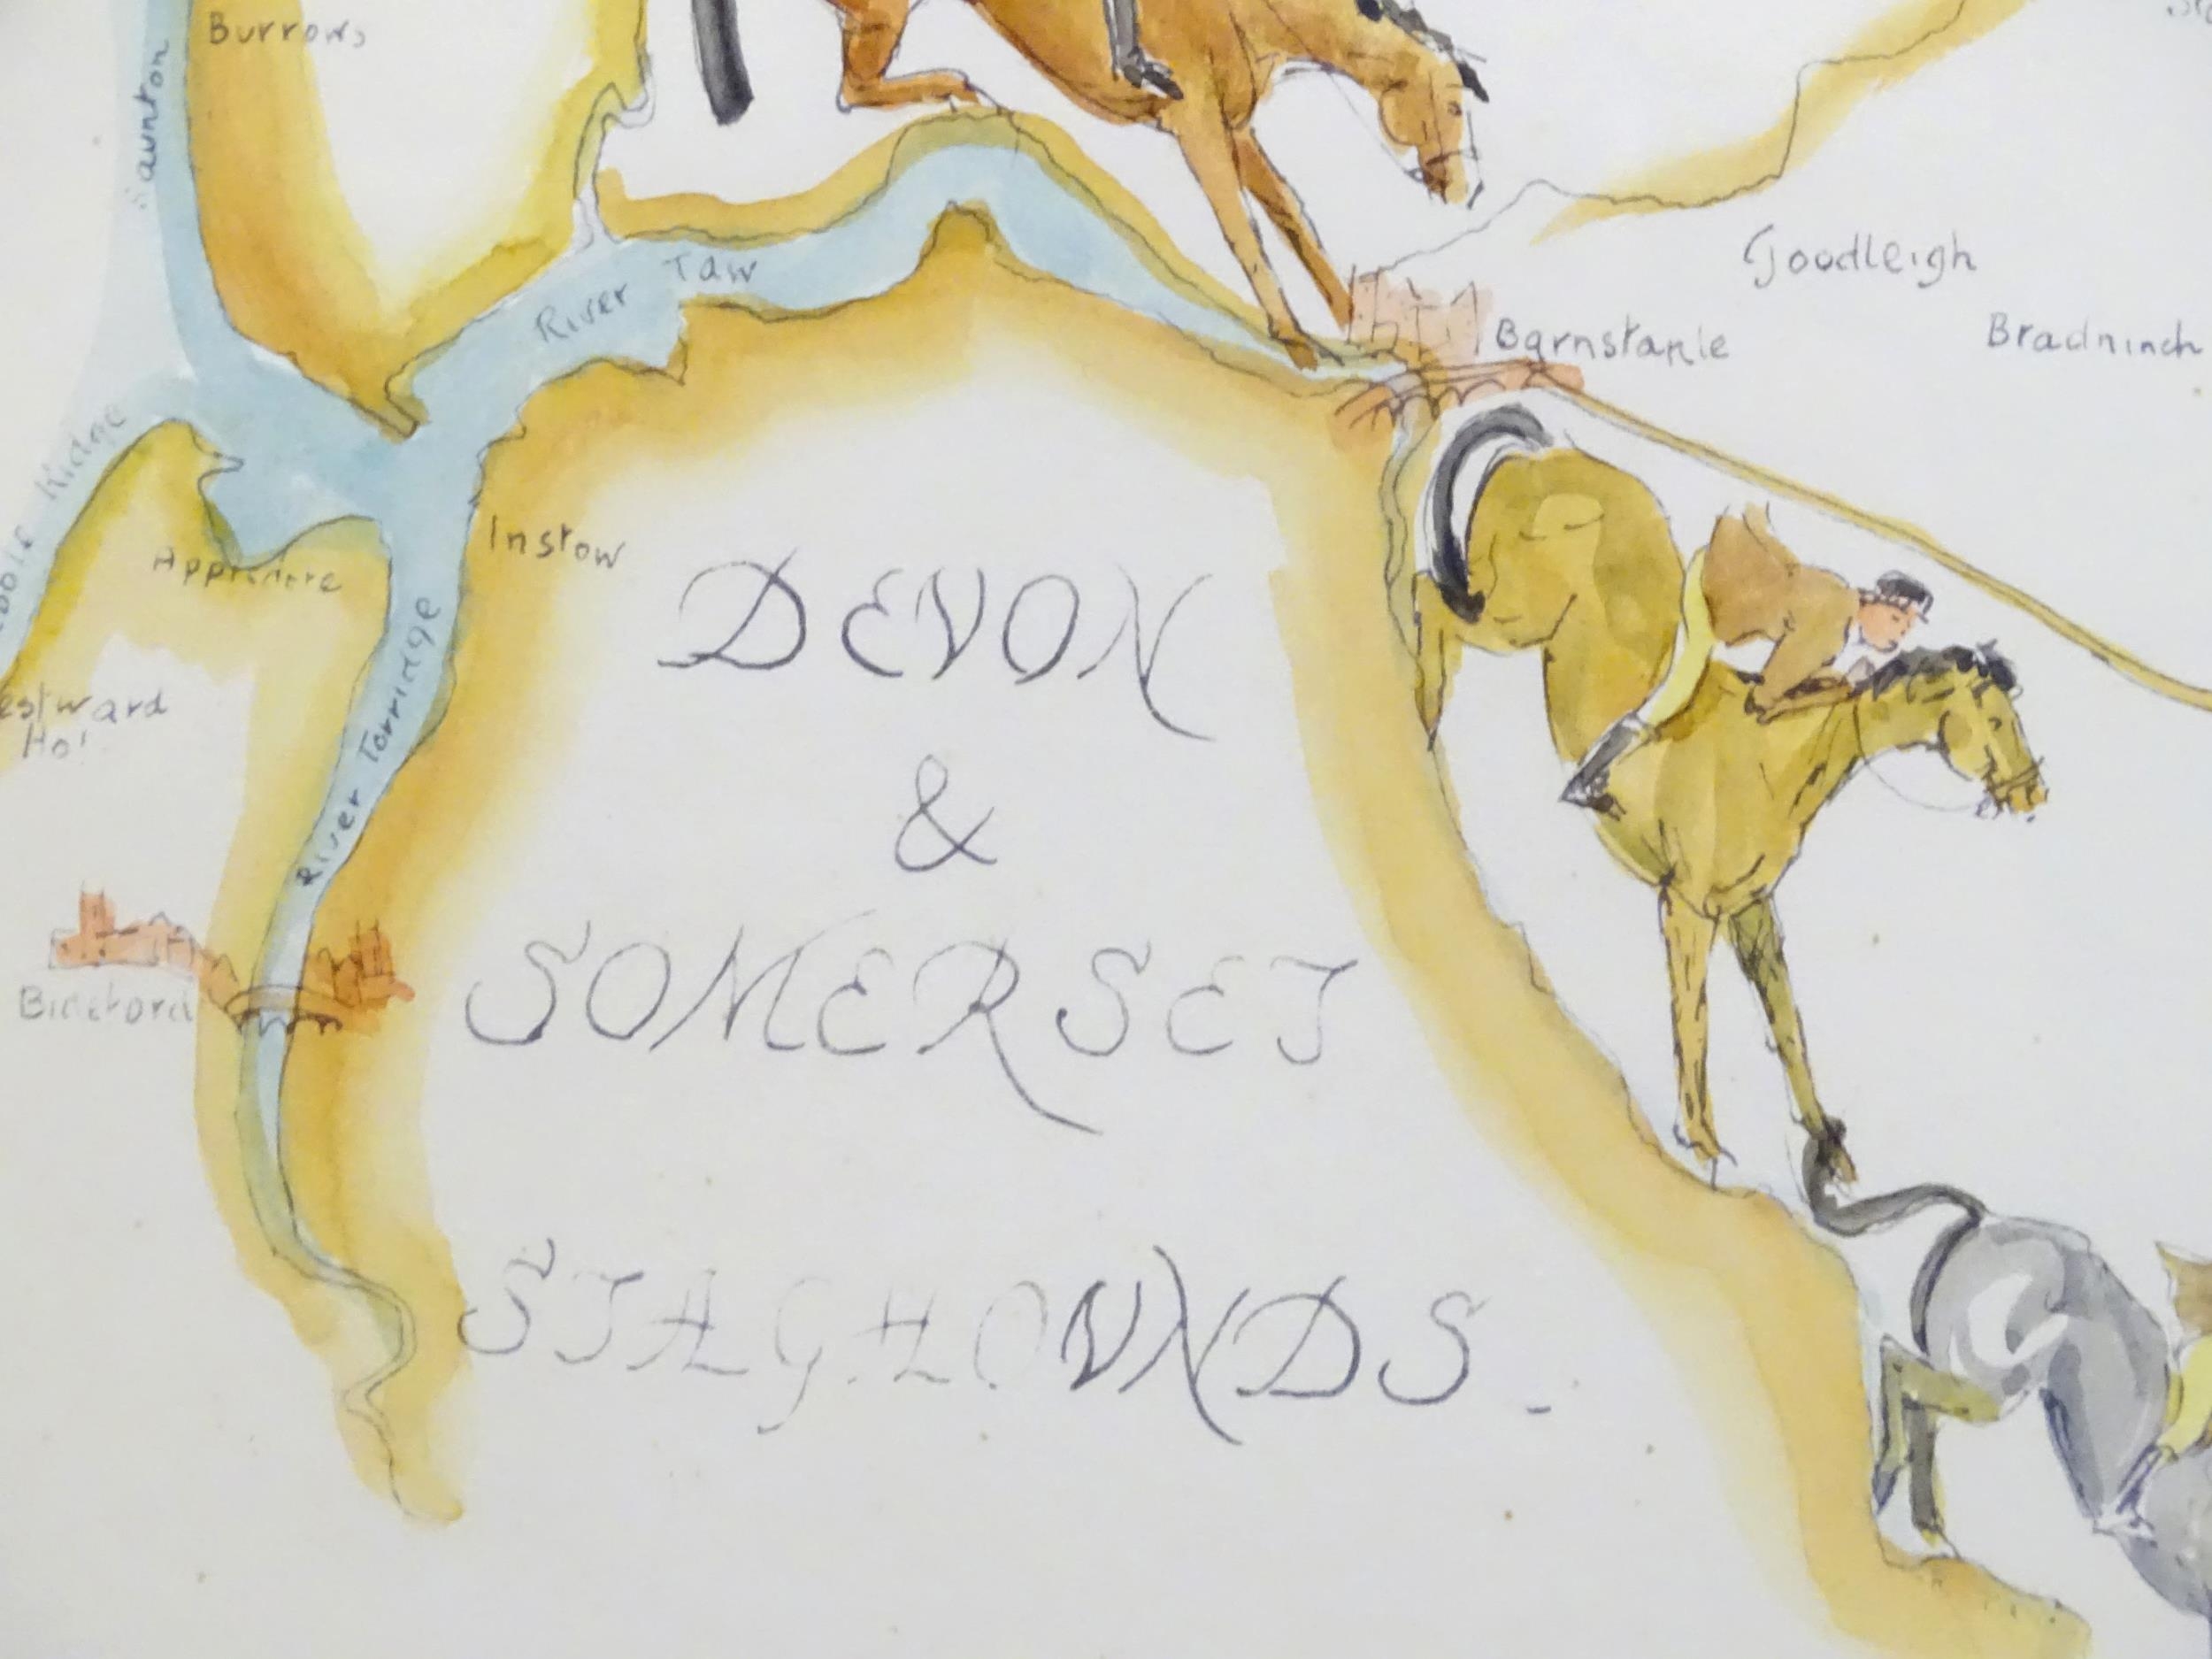 Burrows
Saunton
River Taw
Goodleigh
Barnstaple
Bradninch
Ridge
Instow
Appledore
River Torridge
Westward
Ho!
Bideford
DEVON
&
SOMERSET
STAGHOUNDS.